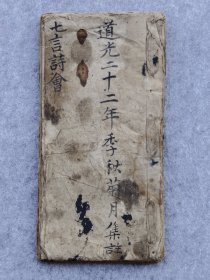 道光二十二年季秋菊月集註
七言詩會